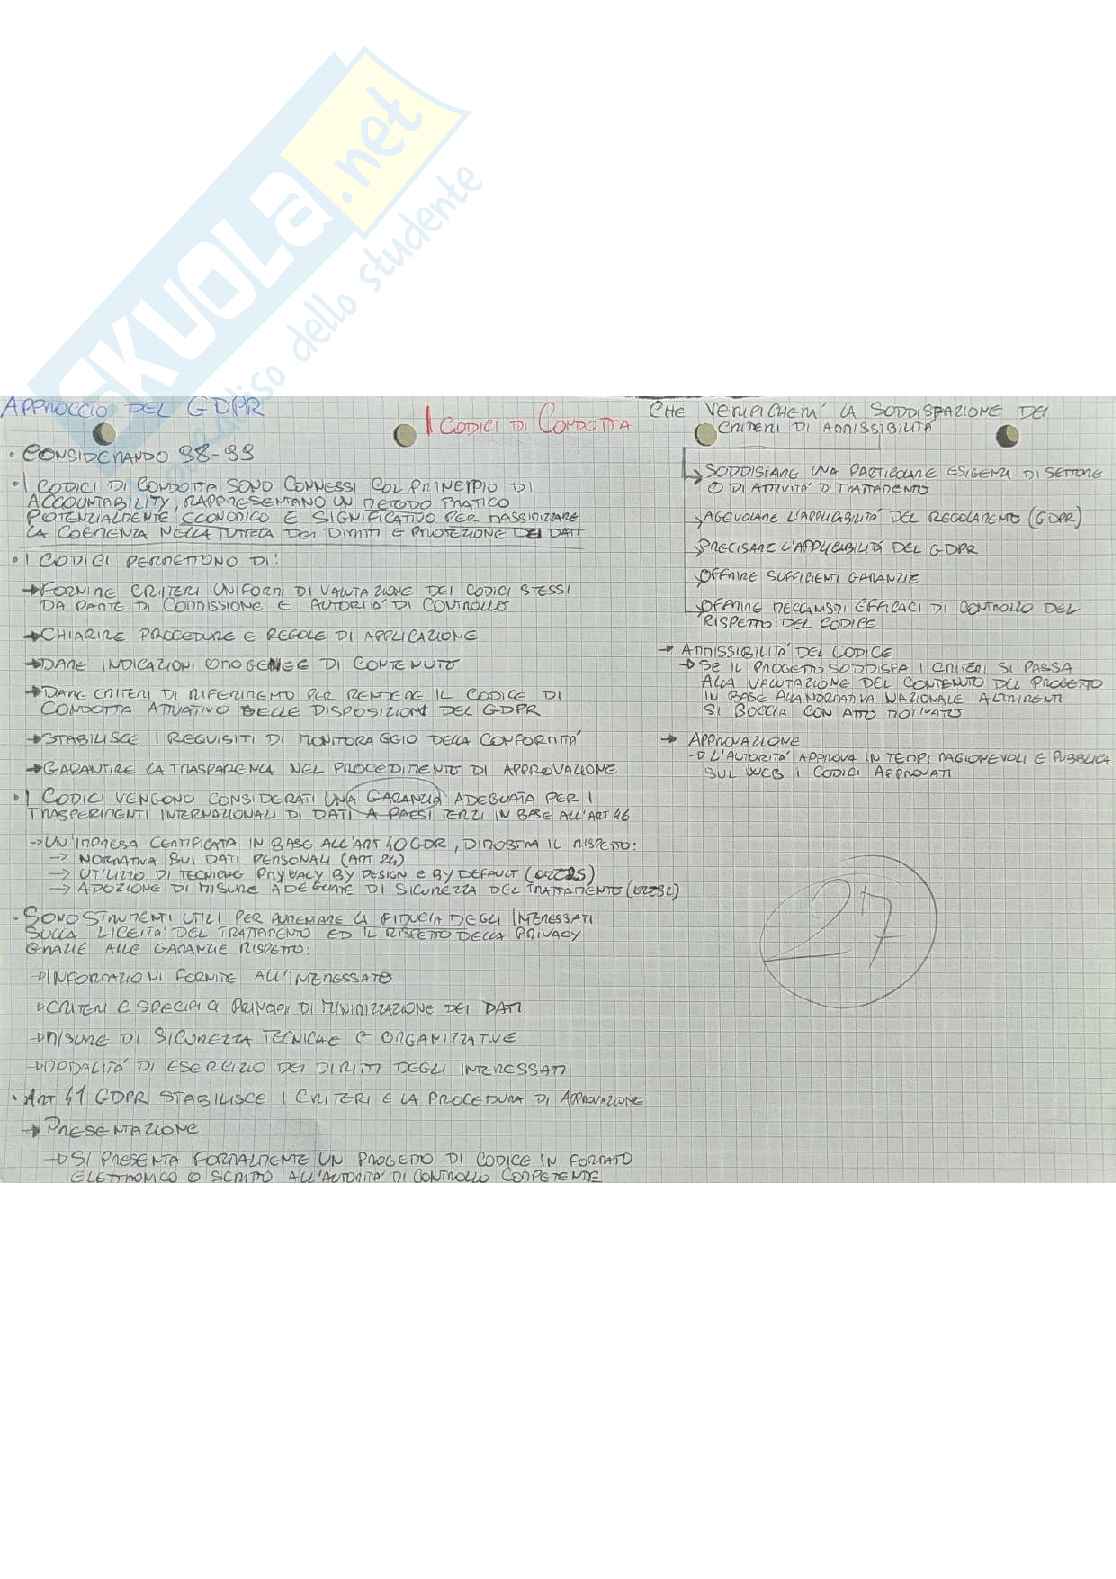 SKUOLA.net
paradiso dello studente
APPROCCIO DEL GDPR
I CODICI DI CONDOTTA
· CONSIDERANDO 98-99
· I CODICI DI CONDOTTA SONO CONNESSI COL PRINCIPIO DI
ACCOUNTABILITY, RAPPRESENTANO UN METODO PRATICO
POTENZIALMENTE ECONOMICO E SIGNIFICATIVO PER MASSIMIZZARE
LA COERENZA NELLA TUTELA DEI DIRITTI E PROTEZIONE DEI DATI
· I CODICI PERMETTONO DI:
→ FORNIRE CRITERI UNIFORMI DI VALUTAZIONE DEI CODICI STESSI
DA PARTE DI COMMISSIONE E AUTORITÀ DI CONTROLLO
→ CHIARIRE PROCEDURE E REGOLE DI APPLICAZIONE
→ DARE INDICAZIONI OMOGENEE DI CONTENUTO
→ DARE CRITERI DI RIFERIMENTO PER RENDERE IL CODICE DI
CONDOTTA ATTUATIVO DELLE DISPOSIZIONI DEL GDPR
→ STABILISCE I REQUISITI DI MONITORAGGIO DELLA CONFORMITÀ
→ GARANTIRE LA TRASPARENZA NEL PROCEDIMENTO DI APPROVAZIONE
· I CODICI VENGONO CONSIDERATI UNA GARANZIA ADEGUATA PER I
TRASFERIMENTI INTERNAZIONALI DI DATI A PAESI TERZI IN BASE ALL'ART 46
→ UN'IMPRESA CERTIFICATA IN BASE ALL'ART 40 GDPR, DIMOSTRA IL RISPETTO:
→ NORMATIVA SUI DATI PERSONALI (ART 24)
→ UTILIZZO DI TECNICHE PRIVACY BY DESIGN E BY DEFAULT
→ ADOZIONE DI MISURE ADEGUATE DI SICUREZZA DEL TRATTAMENTO
· SONO STRUMENTI UTILI PER AUMENTARE LA FIDUCIA DEGLI INTERESSATI
SULLA LICEITÀ DEL TRATTAMENTO ED IL RISPETTO DELLA PRIVACY
GRAZIE ALLE GARANZIE RISPETTO:
→ INFORMAZIONI FORNITE ALL'INTERESSATO
→ CRITERI E SPECIFICI PRINCIPI DI MINIMIZZAZIONE DEI DATI
→ MISURE DI SICUREZZA TECNICHE E ORGANIZZATIVE
→ MODALITÀ DI ESERCIZIO DEI DIRITTI DEGLI INTERESSATI
· ART 41 GDPR STABILISCE I CRITERI E LA PROCEDURA DI APPROVAZIONE
→ PRESENTAZIONE
→ SI PRESENTA FORMALMENTE UN PROGETTO DI CODICE IN FORMATO
ELETTRONICO O SCRITTO ALL'AUTORITÀ DI CONTROLLO COMPETENTE
CHE VERIFICHERÀ LA SODDISFAZIONE DEI
CRITERI DI AMMISSIBILITÀ
→ SODDISFARE UNA PARTICOLARE ESIGENZA DI SETTORE
O DI ATTIVITÀ DI TRATTAMENTO
→ AGEVOLARE L'APPLICABILITÀ DEL REGOLAMENTO (GDPR)
→ PRECISARE L'APPLICABILITÀ DEL GDPR
→ OFFRIRE SUFFICIENTI GARANZIE
→ OFFRIRE MECCANISMI EFFICACI DI CONTROLLO DEL
RISPETTO DEL CODICE
→ AMMISSIBILITÀ DEL CODICE
→ SE IL PROGETTO SODDISFA I CRITERI SI PASSA
ALLA VALUTAZIONE DEL CONTENUTO DEL PROGETTO
IN BASE ALLA NORMATIVA NAZIONALE ALTRIMENTI
SI BOCCIA CON ATTO MOTIVATO
→ APPROVAZIONE
→ L'AUTORITÀ APPROVA IN TEMPI RAGIONEVOLI E PUBBLICA
SUL WEB I CODICI APPROVATI
27